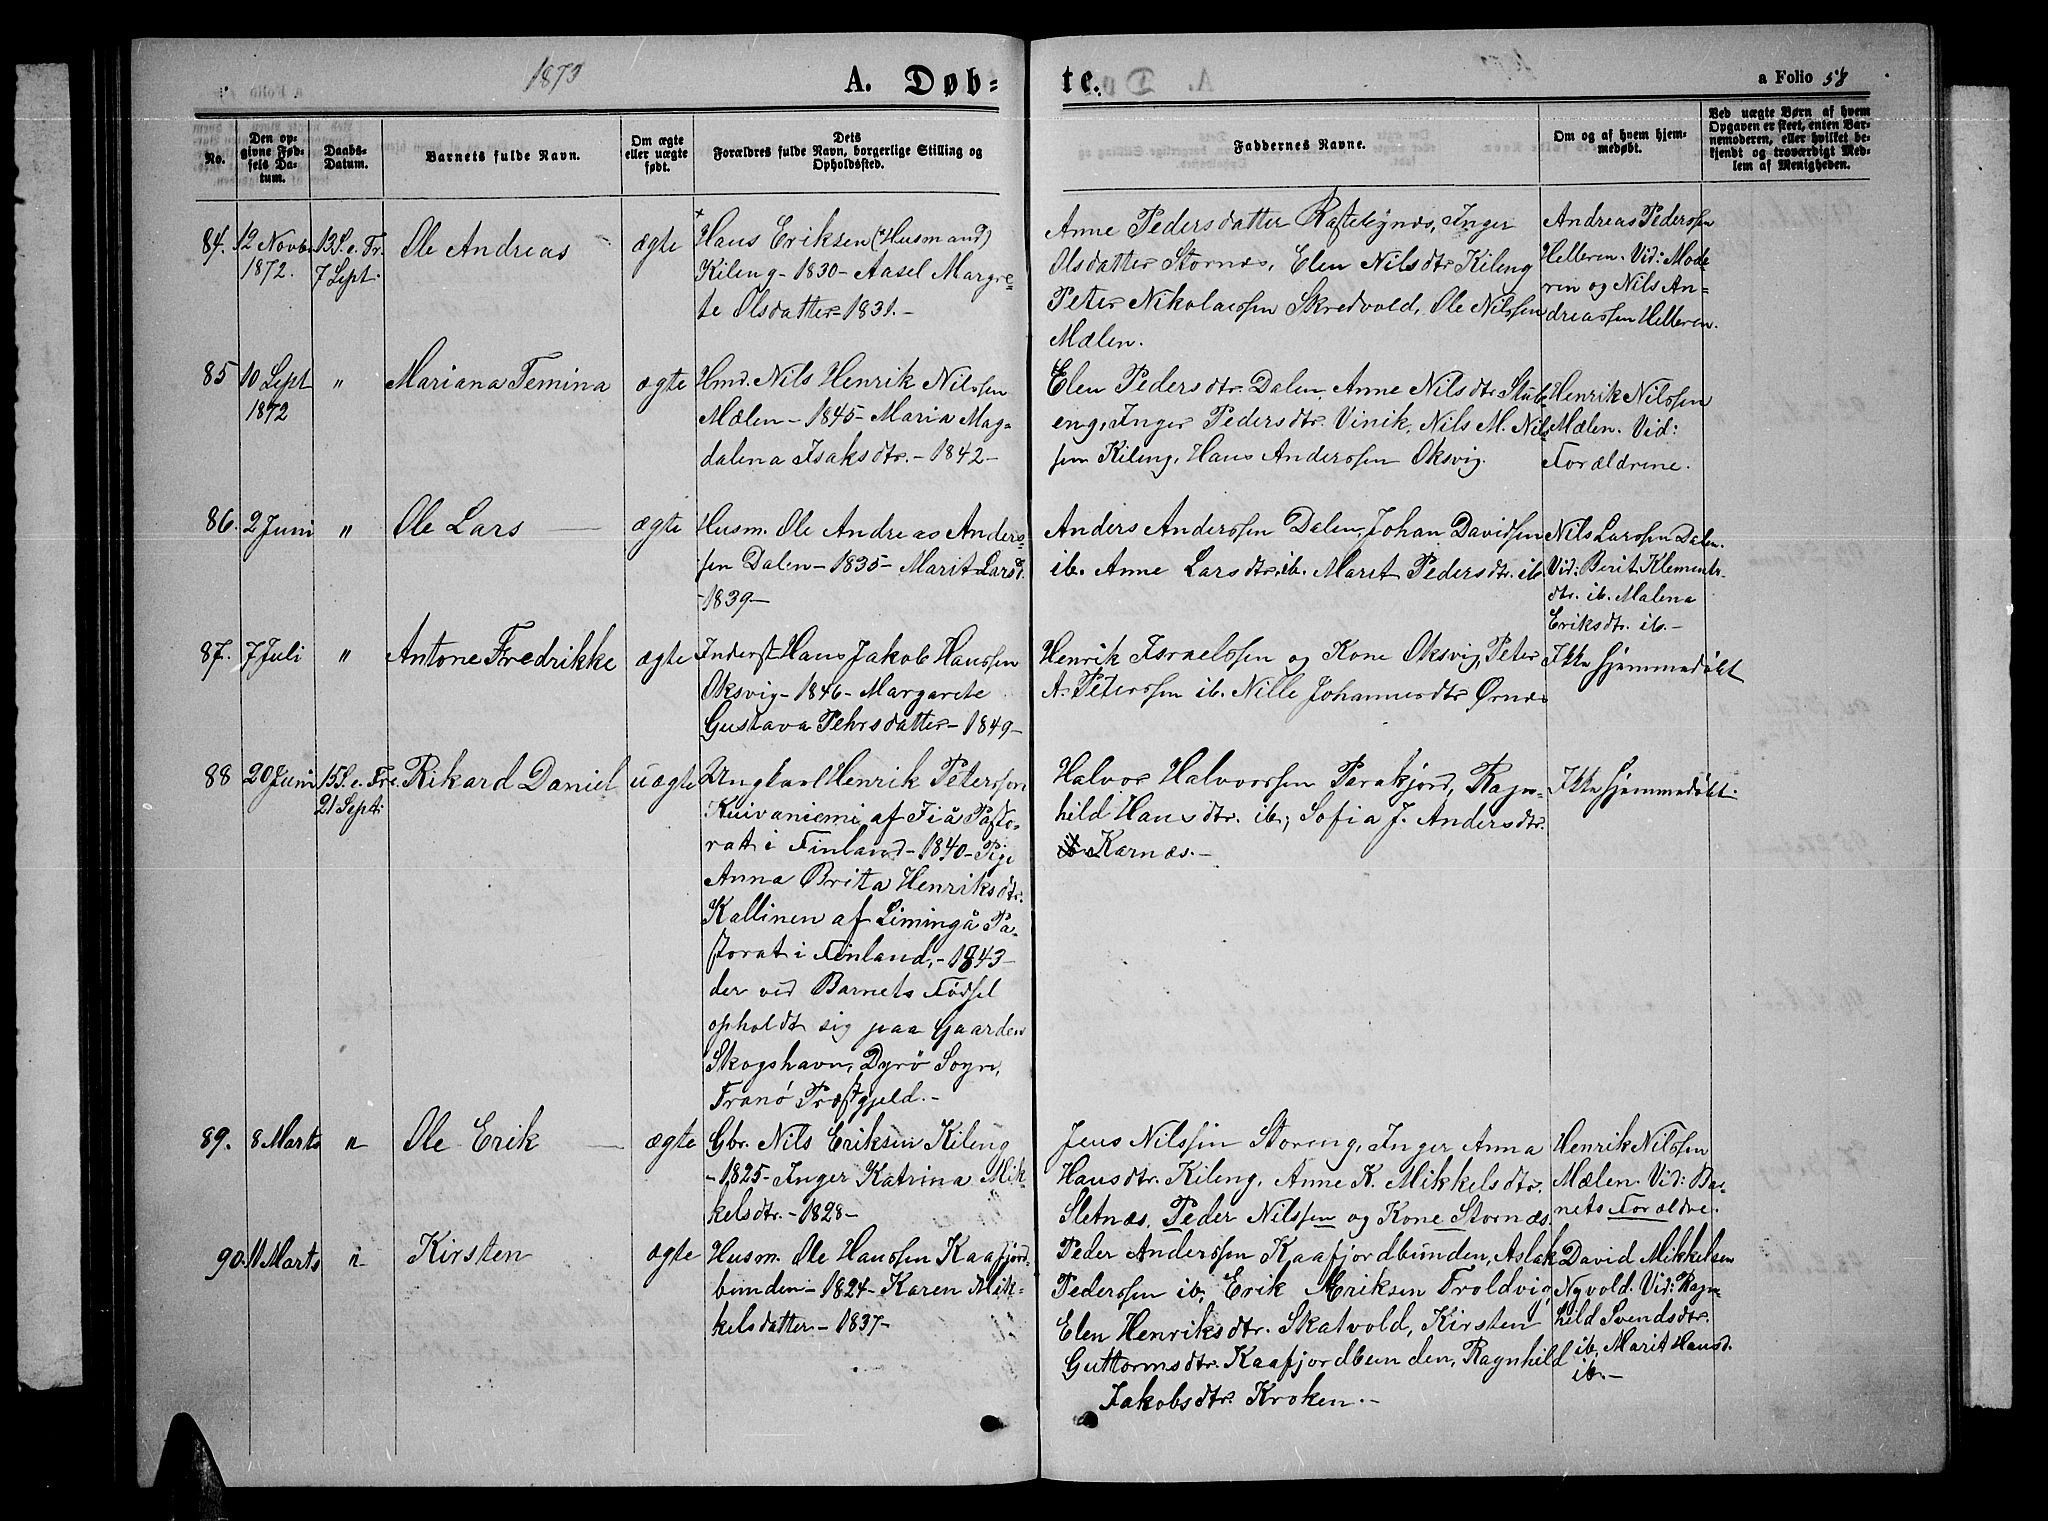 1873
A. Døb-
te.
a Folio 58
No.
Den op-
givne Fød-
sels Da-
tum.
Daabs-
Datum.
Barnets fulde Navn.
Om ægte
eller uægte
født.
Dets
Forældres fulde Navn, borgerlige Stilling og
Opholdssted.
Faddernes Navne.
Om og af hvem hjem-
medøbt.
Ved uægte Børn af hvem
Opgaven er skeet, enten Bar-
nemoderen, eller hvilket be-
kjendt og troværdigt Med-
lem af Menigheden.
84. 12 Novbr 1872. 13 S. e. Tr. 7 Sept: Ole Andreas ægte
Hans Eriksen (Husmand)
Kileng - 1830 - Aasel Margre-
te Olsdatter - 1831. -
Anne Pedersdatter Inger
Olsdatter Stornæs, Elen Nilsdtr Kileng
Peter Nikolaissen Skredvold, Ole Nilssen
Mælen.
Andreas Pederssen
Helleren. Vid: Mode-
ren og Nils An-
dreassen Helleren.
85 10 Sept 1872 " Mariana Temina ægte
Hmd. Nils Henrik Nilssen
Mælen - 1845 - Maria Mag-
dalena Isaksdtr. - 1842 -
Elen Pedersdtr. Dalen, Anne Nilsdtr Stub-
eng, Inger Pedersdtr. Vinik, Nils M. Nils-
sen Kileng, Hans Anderssen Oksvig.
Henrik Nilssen
Mælen. Vid:
Forældrene.
86. 2 Juni " Ole Lars ægte
Husm. Ole Andreas Anders-
sen Dalen - 1835 - Marit Larsd.
- 1839 -
Anders Anderssen Dalen, Johan Davidsen
ib. Anne Larsdtr. ib. Marit Pedersdtr. ib.
Nils Larssen Dalen.
Vid: Berit Klements-
dtr. ib. Malena
Eriksdtr. ib. -
87. 7 Juli " Antone Fredrikke ægte
Inderst Hans Jakob Hanssen
Oksvig - 1846 - Margarete
Gustava Pehrsdatter - 1849 -
Henrik Israelssen og Kone Oksvig, Peter
A. Peterssen ib. Nille Johannesdtr Ørnæs
Ikke hjemmedøbt
88 20 Juni 15 S. e. Tr. 21 Sept: Rikard Daniel uægte
Ungkarl Henrik Peterssen
Kuivaniemi af Iiå Pasto-
rat i Finland - 1840 - Pige
Anna Brita Henriksdtr.
Kallinen af Limingå Pa-
storat i Finland, - 1843 -
der ved Barnets Fødsel
opholdt sig paa Gaarden
Skogshavn, Dyrø Sogn,
Tranø Præstgjeld. -
Halvor Halvorssen Parakjord, Ragn-
hild Hansdtr. ib., Sofia J. Andersdtr.
Karnæs. -
Ikke hjemmedøbt.
89. 8 Marts " Ole Erik ægte
Gbr. Nils Eriksen Kileng
- 1825 - Inger Katrina Mik-
kelsdtr. - 1828 -
Jens Nilssen Storeng, Inger Anna
Hansdtr. Kileng, Anne K. Mikkelsdtr.
Sletnæs, Peder Nilssen og Kone Stornæs.
Henrik Nilssen
Mælen. Vid: Bar-
nets Forældre.
90. 11 Marts " Kirsten ægte
Husm. Ole Hanssen Kaafjord-
bunden - 1824 - Karen Mik-
kelsdatter - 1837 -
Peder Anderssen Kaafjordbunden, Aslak
Pederssen ib, Erik Eriksen Troldvig,
Elen Henriksdtr. Skatvold, Kirsten
Guttormsdtr. Kaafjordbunden, Ragnhild
Jakobsdtr. Kroken. -
David Mikkelsen
Nyvold. Vid: Ragn-
hild Svendsdtr.
ib, Marit Hansd.
ib. -